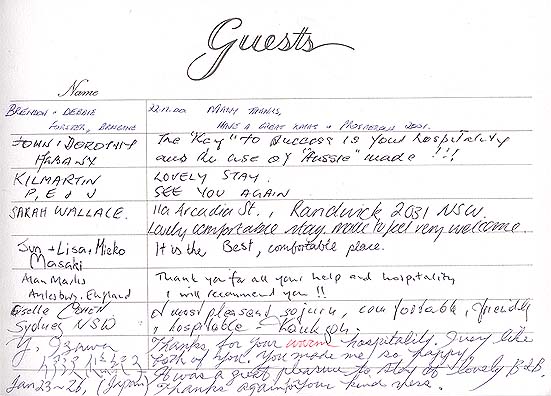 Guests
Name
BRENDON + DEBBIE 22.12.00 MANY THANKS,
FORSTER, HAVE A GREAT XMAS + PROSPEROUS 2001.
JOHN & DOROTHY The "Key" to success is your hospitality
and the use of "Aussie" made !!!
KILMARTIN LOVELY STAY.
P, E & J SEE YOU AGAIN
SARAH WALLACE. 11a Arcadia St., Randwick 2031 NSW.
Lovely comfortable stay, made to feel very welcome.
Jun + Lisa + Mieko It is the Best, comfortable place.
Masaki
Alan Marks Thank you for all your help and hospitality
Aylesbury, England I will recommend you !!
Giselle Cohen A most pleasant sojourn, comfortable, friendly
Sydney NSW + hospitable –
Y, Thanks for your warm hospitality. I very like
both of you. You made me so happy.
It was a great pleasure to stay at lovely B&B.
Jan 23~26, (Japan) Thanks again for your kindness.